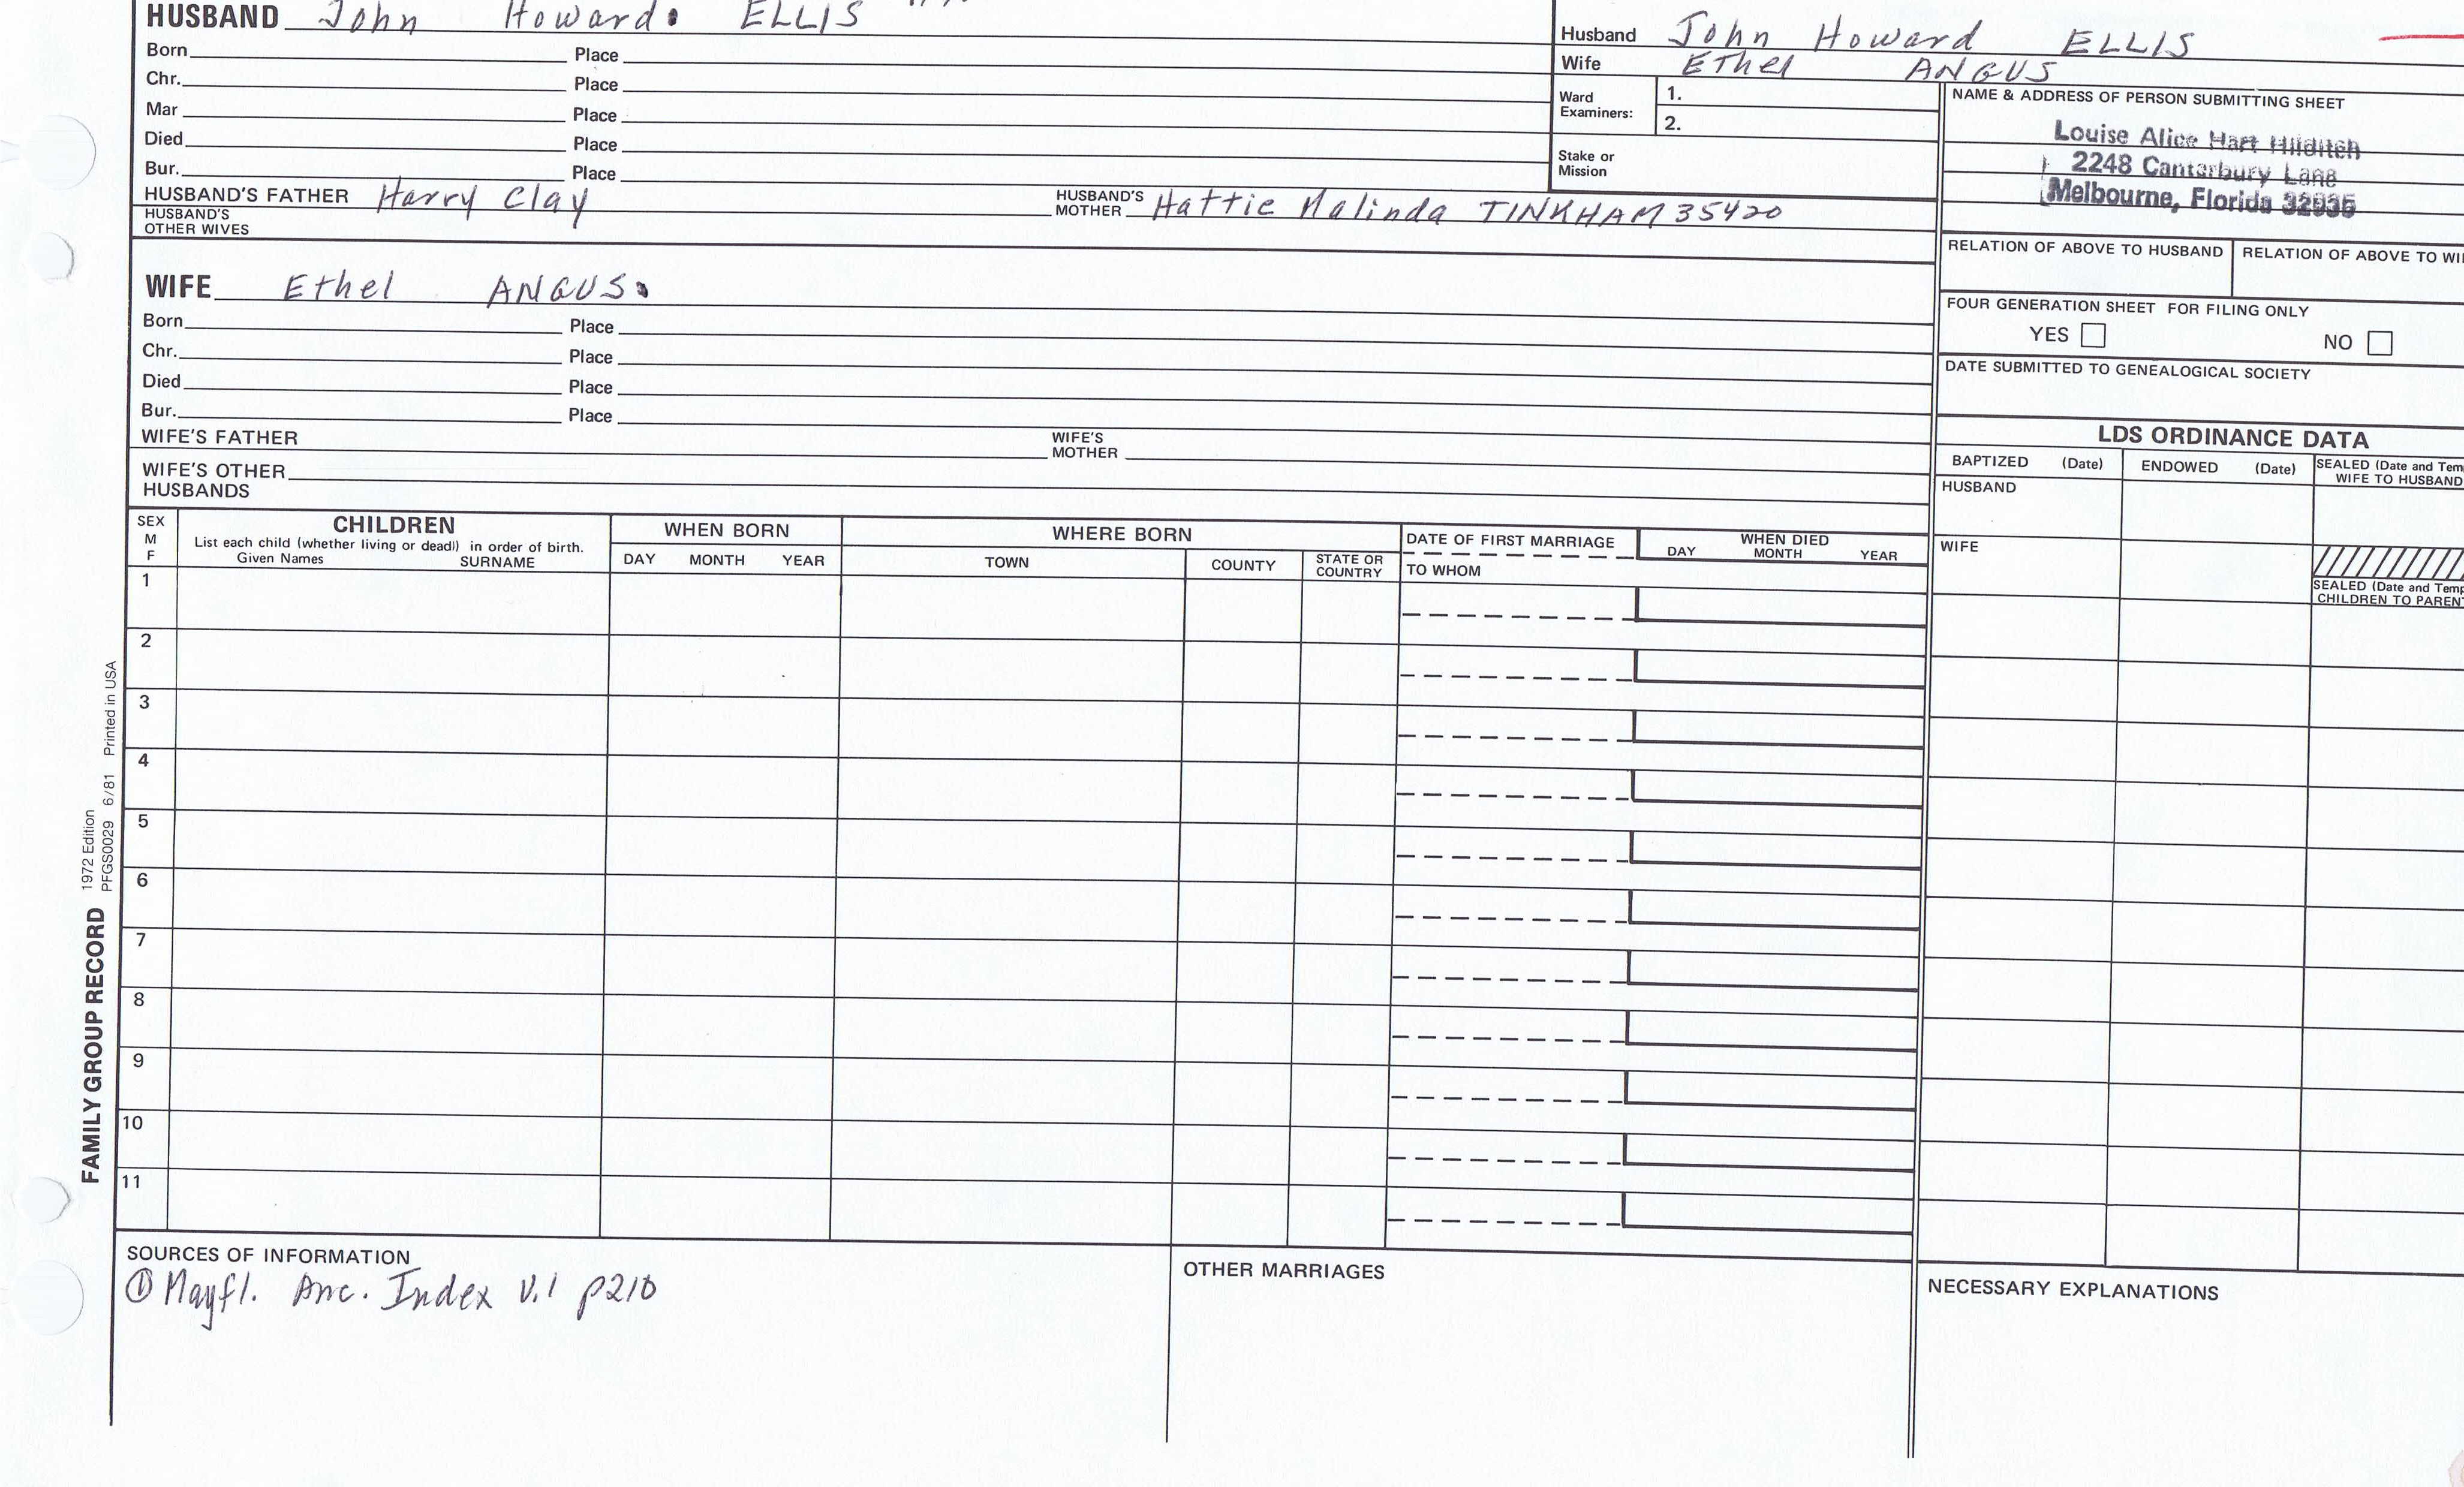 HUSBAND John Howard ELLIS
Born Place
Chr. Place
Mar Place
Died Place
Bur. Place
HUSBAND'S FATHER Harry Clay HUSBAND'S MOTHER Hattie Malinda TINKHAM 35420
HUSBAND'S OTHER WIVES
Husband John Howard ELLIS
Wife Ethel ANGUS
Ward Examiners: 1.
2.
Stake or Mission
NAME & ADDRESS OF PERSON SUBMITTING SHEET
Louise Alice Hart Hilditch
2248 Canterbury Lane
Melbourne, Florida 32935
RELATION OF ABOVE TO HUSBAND RELATION OF ABOVE TO WI
FOUR GENERATION SHEET FOR FILING ONLY
YES NO
DATE SUBMITTED TO GENEALOGICAL SOCIETY
WIFE Ethel ANGUS
Born Place
Chr. Place
Died Place
Bur. Place
WIFE'S FATHER WIFE'S MOTHER
WIFE'S OTHER HUSBANDS
LDS ORDINANCE DATA
BAPTIZED (Date) ENDOWED (Date) SEALED (Date and Tem
WIFE TO HUSBAND
HUSBAND
WIFE
SEALED (Date and Temp
CHILDREN TO PARENT
SEX M F
CHILDREN
List each child (whether living or dead) in order of birth.
Given Names SURNAME
WHEN BORN
DAY MONTH YEAR
WHERE BORN
TOWN COUNTY STATE OR COUNTRY
DATE OF FIRST MARRIAGE
TO WHOM
WHEN DIED
DAY MONTH YEAR
1
2
3
4
5
6
7
8
9
10
11
FAMILY GROUP RECORD
1972 Edition
PFGS0029 6/81 Printed in USA
SOURCES OF INFORMATION
① Mayfl. Anc. Index V.1 p210
OTHER MARRIAGES
NECESSARY EXPLANATIONS